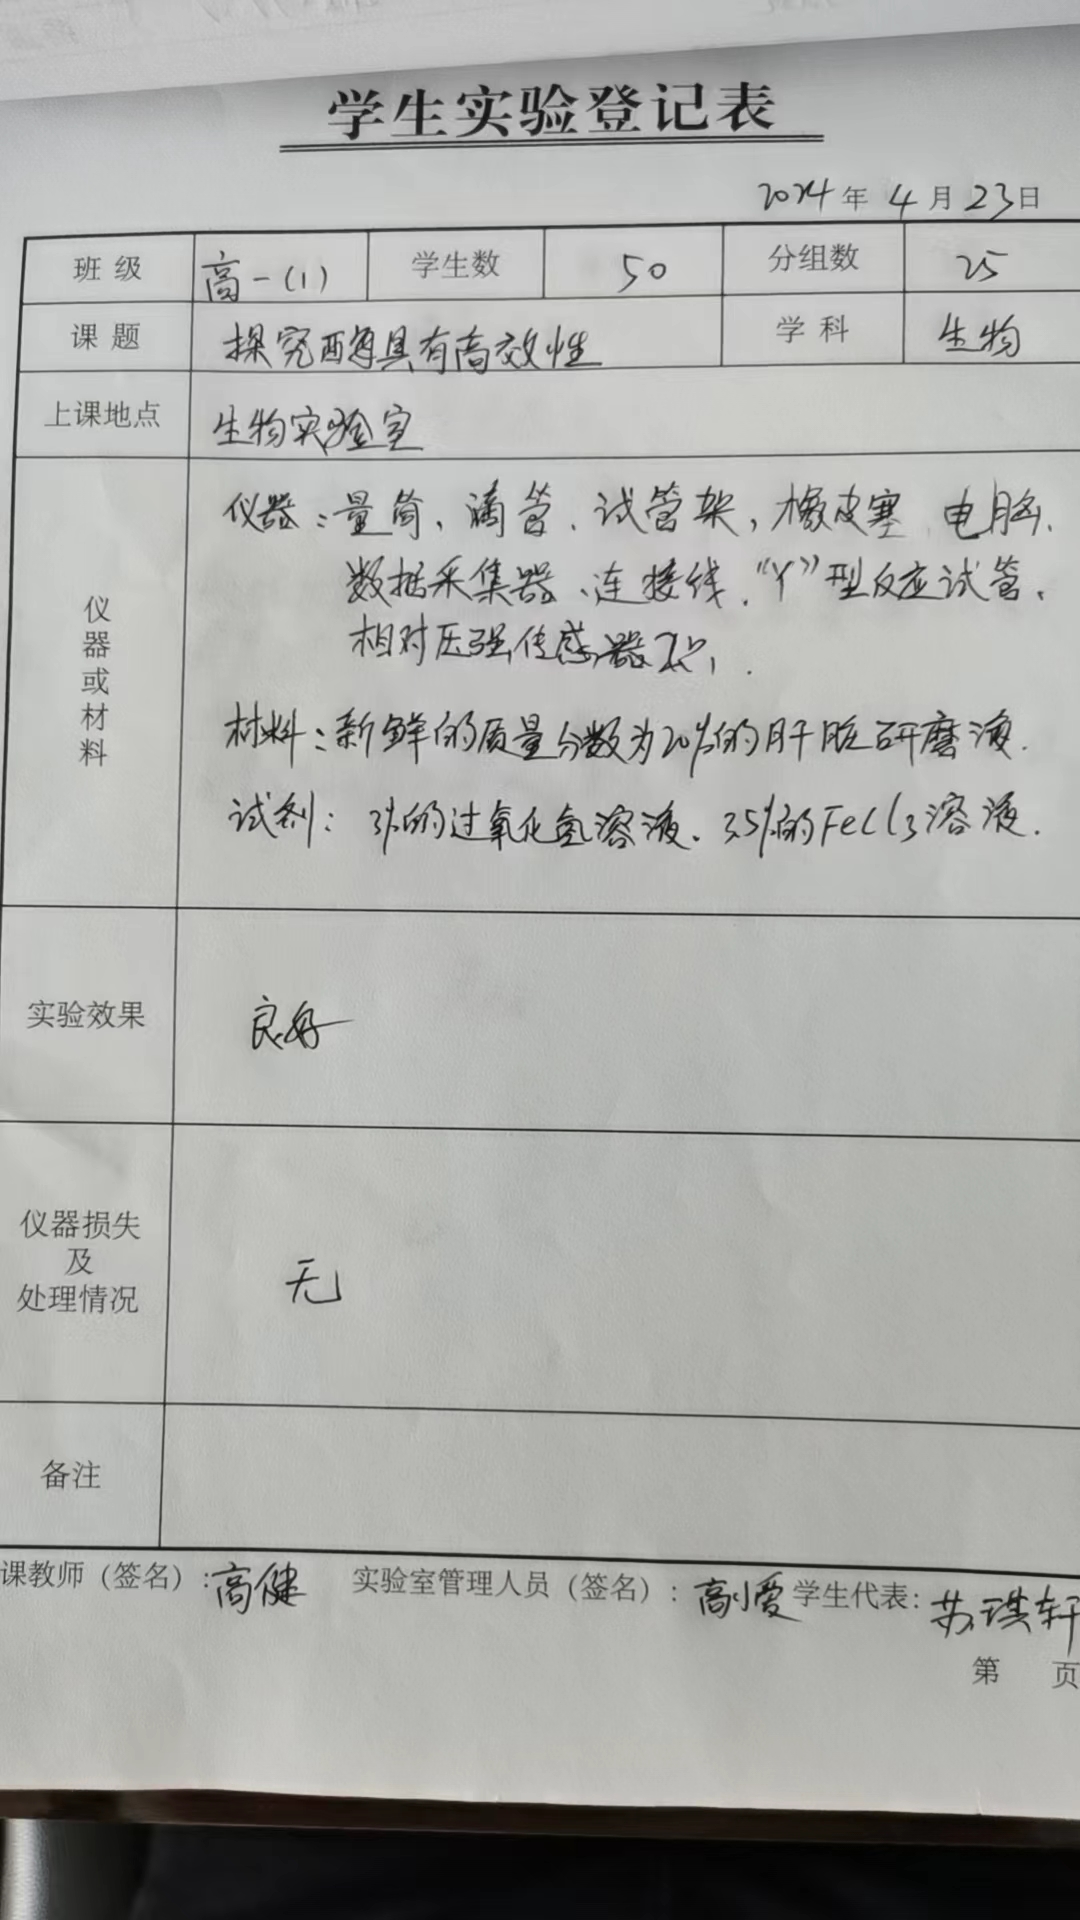 学生实验登记表
2024年4月23日
班级 高一(1) 学生数 50 分组数 25
课题 探究酶具有高效性 学科 生物
上课地点 生物实验室
仪器或材料
仪器:量筒、滴管、试管架,橡皮塞 电脑、
数据采集器、连接线、"Y"型反应试管、
相对压强传感器2只,.
材料:新鲜的质量分数为20%的肝脏研磨液.
试剂:3%的过氧化氢溶液、3.5%的FeCl3溶液.
实验效果 良好
仪器损失
及
处理情况
无
备注
课教师(签名):高健 实验室管理人员(签名):高小爱 学生代表:苏琪轩
第 页